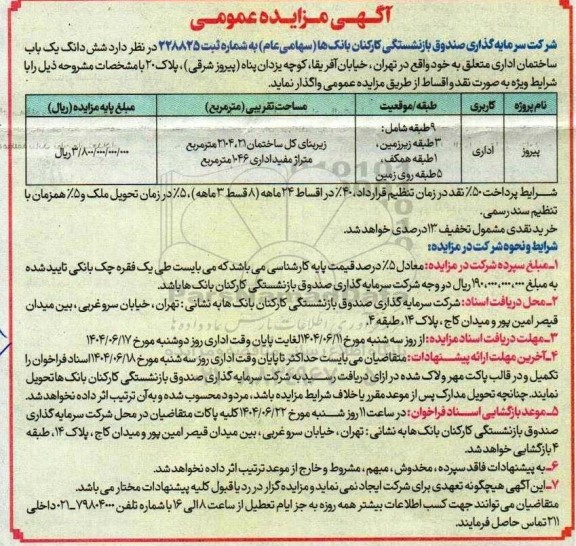 آگهی مزایده عمومی
شرکت سرمایه گذاری صندوق بازنشستگی کارکنان بانک‌ها (سهامی عام) به شماره ثبت ۲۲۸۸۲۵ در نظر دارد شش دانگ یک باب
ساختمان اداری متعلق به خود واقع در تهران، خیابان آفریقا، کوچه یزدان پناه (پیروز شرقی)، پلاک ۲۰ با مشخصات مشروحه ذیل را با
شرایط ویژه به صورت نقد و اقساط از طریق مزایده عمومی واگذار نماید.
نام پروژه کاربری طبقه/موقعیت مساحت تقریبی (مترمربع) مبلغ پایه مزایده (ریال)
پیروز اداری
۹ طبقه شامل:
۳ طبقه زیرزمین،
۱ طبقه همکف،
۵ طبقه روی زمین
زیربنای کل ساختمان ۲۱۰۴,۲۱ مترمربع
متراژ مفید اداری ۱۰۴۶ مترمربع
۳/۸۰۰/۰۰۰/۰۰۰/۰۰۰ ریال
شرایط پرداخت ۵۰٪ نقد در زمان تنظیم قرارداد، ۴۰٪ در اقساط ۲۴ ماهه (۸ قسط ۳ ماهه)، ۵٪ در زمان تحویل ملک و ۵٪ همزمان با
تنظیم سند رسمی.
خرید نقدی مشمول تخفیف ۱۳ درصدی خواهد شد.
شرایط و نحوه شرکت در مزایده:
۱- مبلغ سپرده شرکت در مزایده: معادل ۵٪ درصد قیمت پایه کارشناسی می باشد که می بایست طی یک فقره چک بانکی تایید شده
به مبلغ ۱۹۰,۰۰۰,۰۰۰,۰۰۰ ریال در وجه شرکت سرمایه گذاری صندوق بازنشستگی کارکنان بانک ها باشد.
۲- محل دریافت اسناد: شرکت سرمایه گذاری صندوق بازنشستگی کارکنان بانک ها به نشانی: تهران، خیابان سرو غربی، بین میدان
قیصر امین پور و میدان کاج، پلاک ۱۴، طبقه ۴
۳- مهلت دریافت اسناد مزایده: از روز سه شنبه مورخ ۱۴۰۴/۰۶/۱۱ لغایت پایان وقت اداری روز دوشنبه مورخ ۱۴۰۴/۰۶/۱۷
۴- آخرین مهلت ارائه پیشنهادات: متقاضیان می بایست حداکثر تا پایان وقت اداری روز سه شنبه مورخ ۱۴۰۴/۰۶/۱۸ اسناد فراخوان را
تکمیل و در قالب پاکت مهر و لاک شده در ازای دریافت رسید به شرکت سرمایه گذاری صندوق بازنشستگی کارکنان بانک ها تحویل
نمایند. چنانچه تحویل مدارک پس از موعد مقرر یا خلاف شرایط مزایده باشد، مردود محسوب شده و به آن ترتیب اثر داده نخواهد شد.
۵- موعد بازگشایی اسناد فراخوان: در ساعت ۱۱ روز شنبه مورخ ۱۴۰۴/۰۶/۲۲ کلیه پاکات متقاضیان در محل شرکت سرمایه گذاری
صندوق بازنشستگی کارکنان بانک ها به نشانی: تهران، خیابان سرو غربی، بین میدان قیصر امین پور و میدان کاج، پلاک ۱۴، طبقه
۴ بازگشایی خواهد شد.
۶- به پیشنهادات فاقد سپرده، مخدوش، مبهم، مشروط و خارج از موعد ترتیب اثر داده نخواهد شد.
۷- این آگهی هیچگونه تعهدی برای شرکت ایجاد نمی نماید و مزایده گزار در رد یا قبول کلیه پیشنهادات مختار می باشد.
متقاضیان می توانند جهت کسب اطلاعات بیشتر همه روزه به جز ایام تعطیل از ساعت ۸ الی ۱۶ با شماره تلفن ۷۹۸۰۴۰۰۰-۰۲۱ داخلی
۲۱۱ تماس حاصل فرمایند.